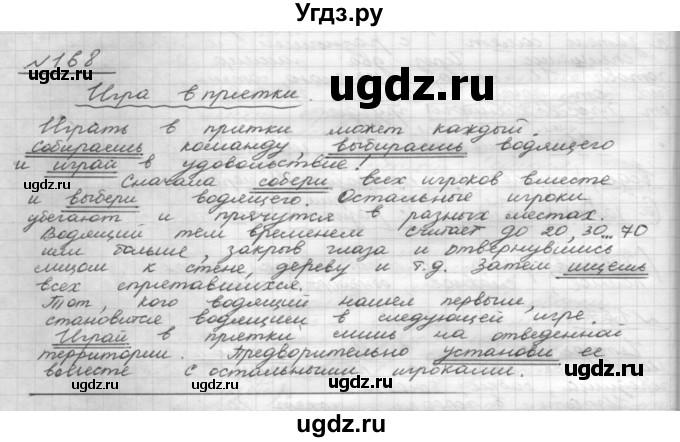 Угдз.ру
№168
Игра в прятки.
Играть в прятки может каждый.
собираешь команду, выбираешь водящего
и играй в удовольствие!
Сначала собери всех игроков вместе
и выбери водящего. Остальные игроки
убегают и прячутся в разных местах.
Водящий тем временем считает до 20, 30...70
или больше, закрыв глаза и отвернувшись
лицом к стене, дереву и т.д. Затем ищешь
всех спрятавшихся.
Тот, кого водящий нашел первым,
становится водящием в следующей игре.
Играй в прятки лишь на отведенной
территории. Предворительно установи ее
вовместе с остальными игроками.
ugdz.ru ugdz.ru ugdz.ru
ugdz.ru ugdz.ru ugdz.ru
ugdz.ru ugdz.ru ugdz.ru
ugdz.ru ugdz.ru ugdz.ru
Угдз.ру